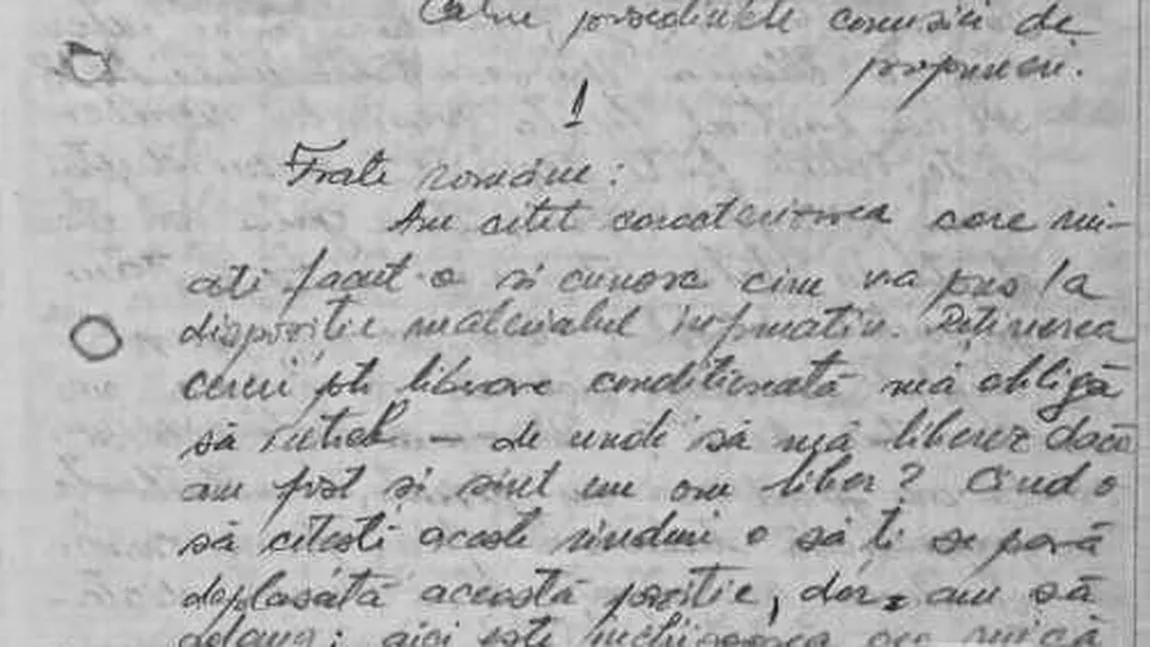 Către președintele comisiei de
propuneri.
1
Frate române:
Am citit caracterizarea care mi-
ați facut-o și cunosc cine v-a pus la
dispoziție materialul informativ. Reținerea
cererii ptr liberare condiționată mă obligă
să — de unde să mă liberez dacă
am fost și sînt un om liber? Cînd o
să citești aceste rînduri o să ți se pară
deplasată această poziție, dar am să
adaug: aici este închisoarea cea mică